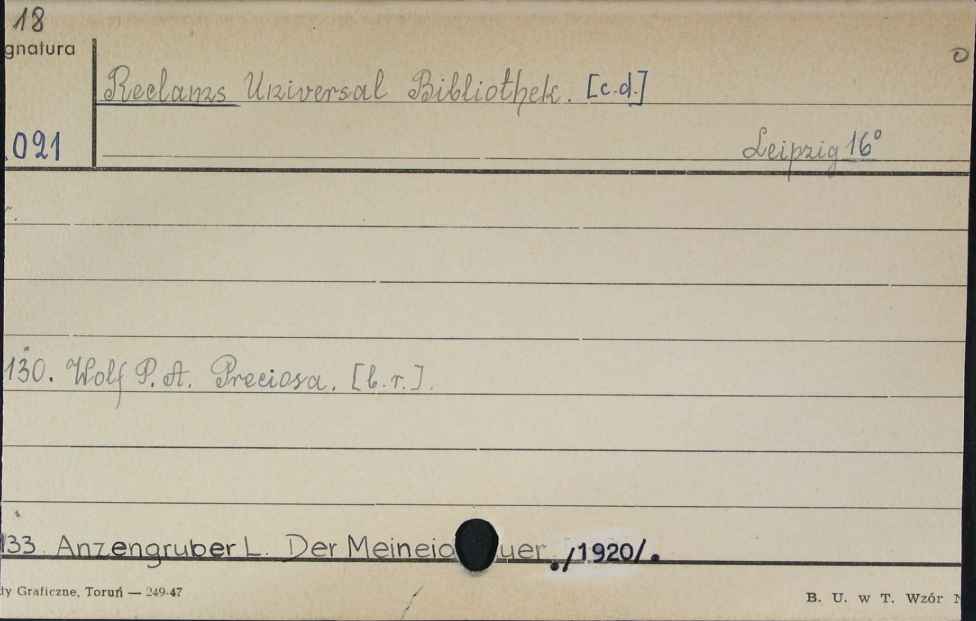 18
gnatura
Reclams Universal Bibliothek. [c.d.]
.021
Leipzig 16°
130. Wolf P. A. Preciosa. [b.r.].
133 Anzengruber L. Der Meineid uer ./1920/.
dy Graficzne, Toruń — 249-47
B. U. w T. Wzór N